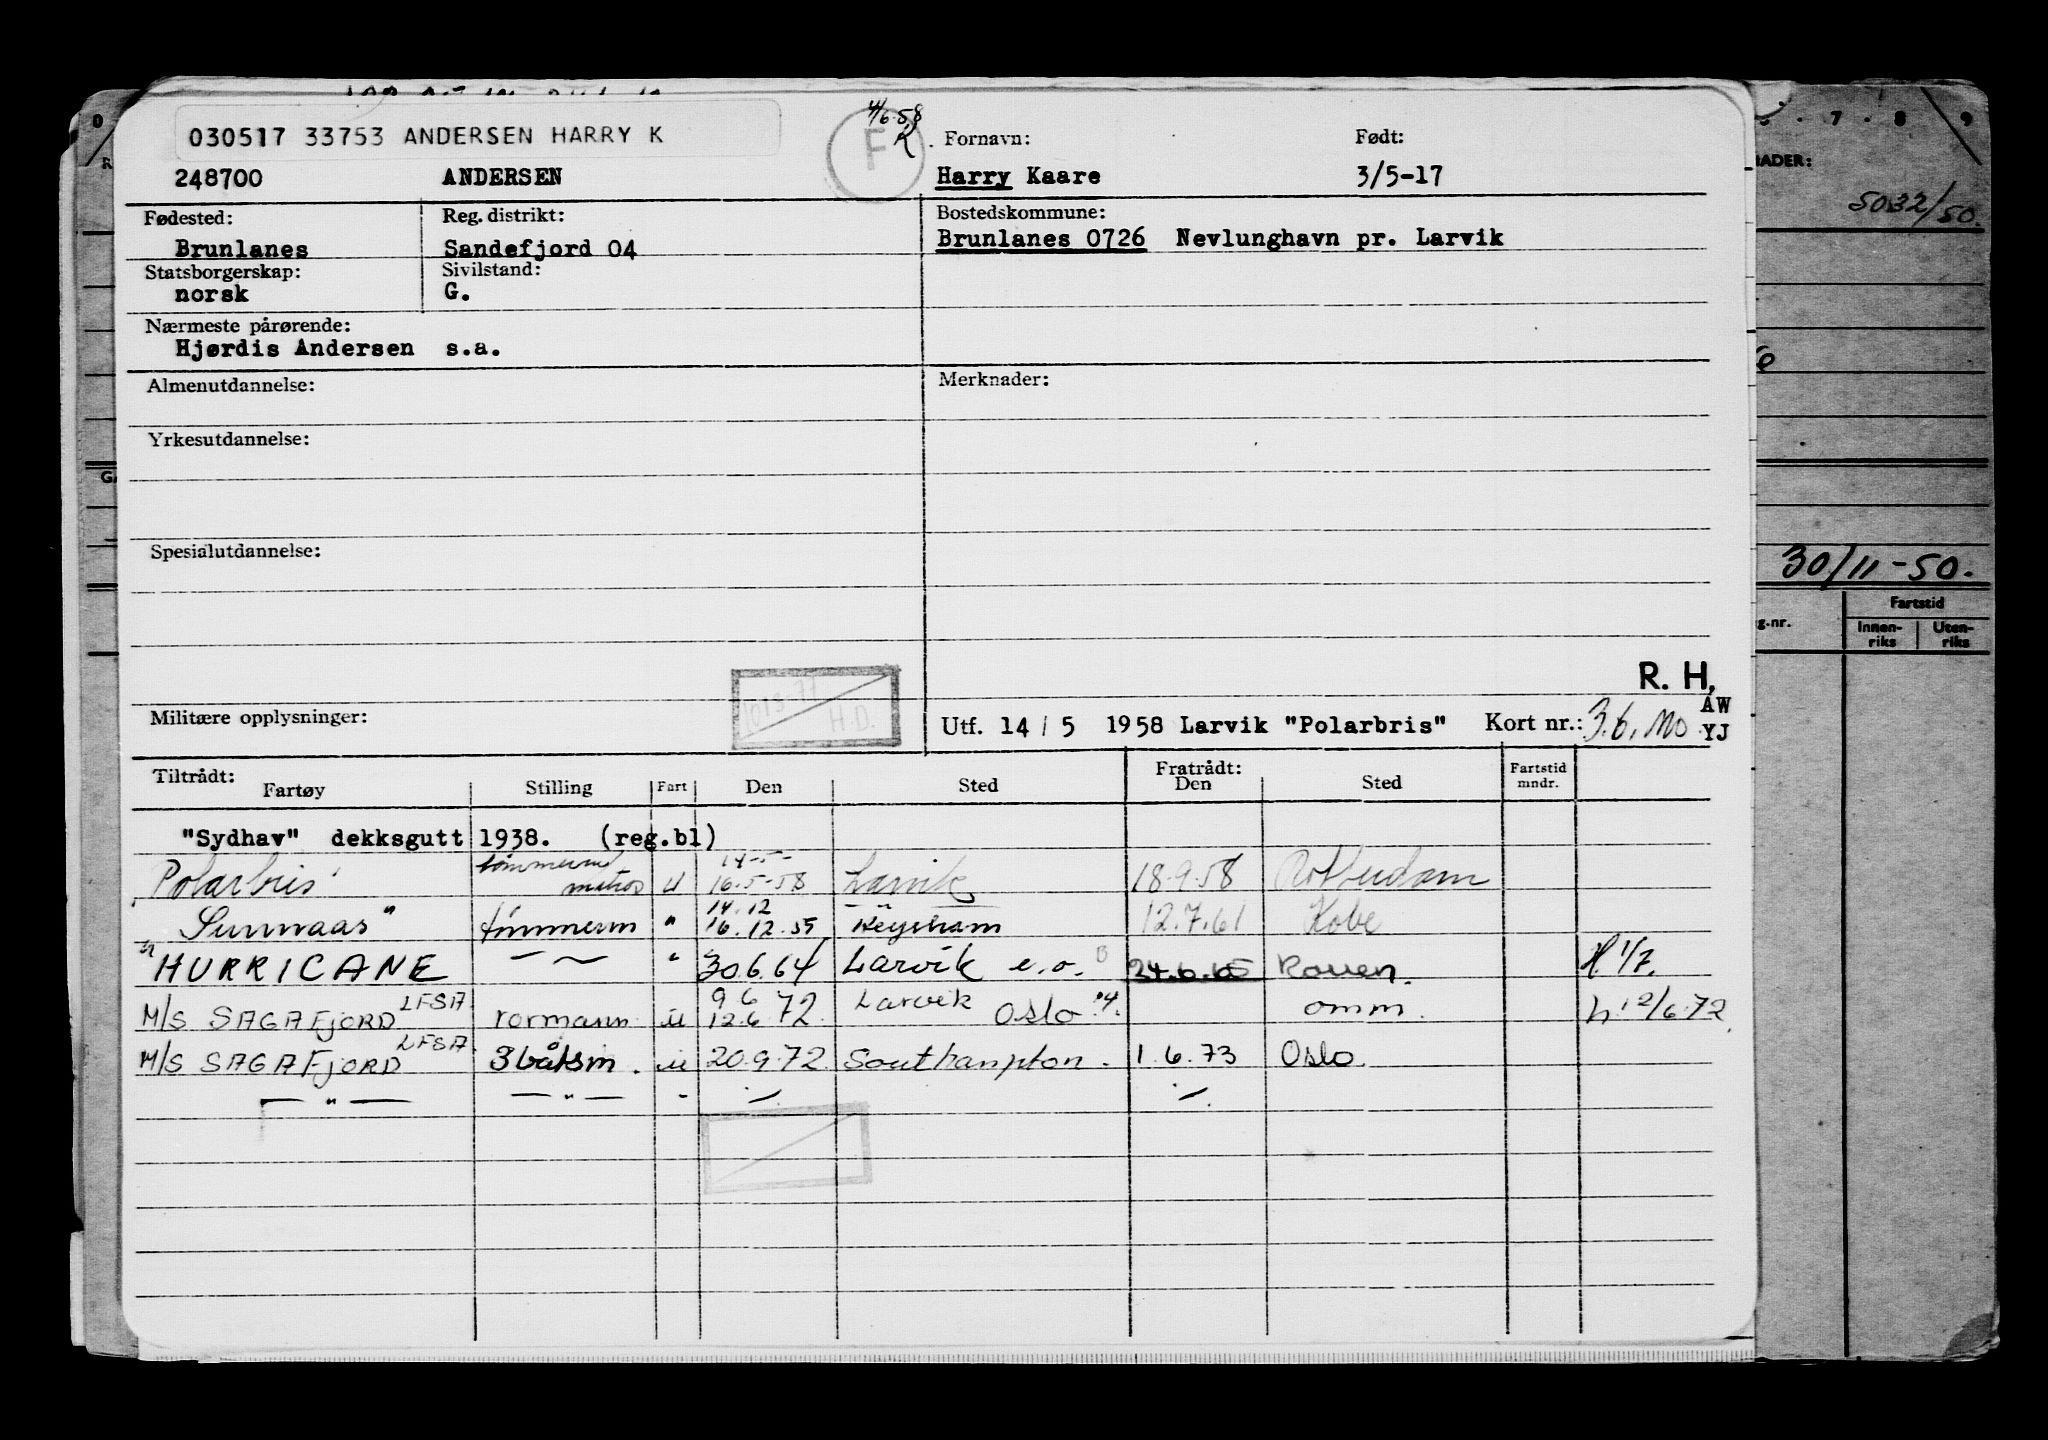 030517 33753 ANDERSEN HARRY K
4/6.58
F
R
Fornavn: Født:
248700 ANDERSEN Harry Kaare 3/5-17
Fødested: Reg. distrikt: Bostedskommune:
Brunlanes Sandefjord 04 Brunlanes 0726 Nevlunghavn pr. Larvik
Statsborgerskap: Sivilstand:
norsk G.
Nærmeste pårørende:
Hjørdis Andersen s.a.
Almenutdannelse: Merknader:
Yrkesutdannelse:
Spesialutdannelse:
R. H,
AW
H.D.
Militære opplysninger: Utf. 14 / 5 1958 Larvik "Polarbris" Kort nr.: YJ
Tiltrådt: Fratrådt: Fartstid
Fartøy Stilling Fart Den Sted Den Sted mndr.
"Sydhav" dekksgutt 1938. (reg.bl)
14-5-
Polarbris matros u 16.5-58 Larvik 18.9.58 Rotterdam
14.12
"Sunnaas" tømmerm " 16.12.59 12.7.61 Kobe
"HURRICANE — " 30.6.64 Larvik e.o. 24.6.65 Rouen. H 1/7.
9 6
M/S SAGAFJORD LFSA tørmann u 12.6 72. Larvik Oslo omm. h 12/6.72.
M/S SAGAFJORD LFSA 3 båtsm. u 20.9.72 Southampton. 1.6.73 Oslo.
— " — — " — "
MADER:
5032/50.
30/11-50.
Fartstid
g.nr. Innen-riks Uten-riks
7 · 8 · 9